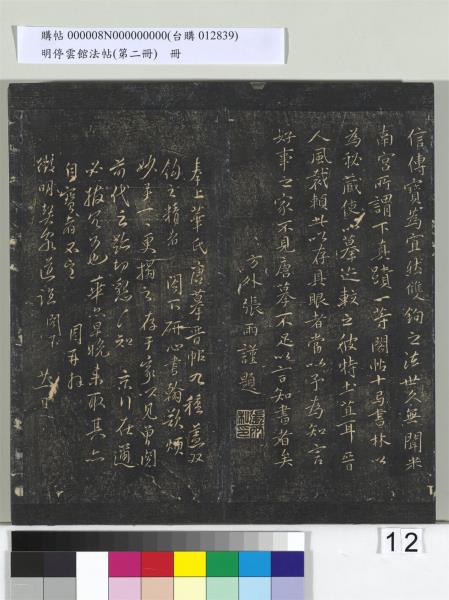 購帖 000008N000000000(台購 012839)
明停雲館法帖(第二冊) 冊
信傳寶為宜然雙鉤之法世久無聞米
南宮所謂下真蹟一等閣帖十馬書林以
為秘藏使以摹迹較之彼特土苴耳晉
人風裁賴此以存具眼者當以予為知言
好事之家不見唐摹不足以言知書者矣
方外張雨謹題
奉上華氏唐摹晉帖九種蓋雙
鉤之精者 閣下研心書翰欲煩
妙手一一更搨之存于家以見曾閱
前代云歟切懇
必撥冗為 華 早晚來取其亦
自寶者不
徵明契家道誼閣下
12